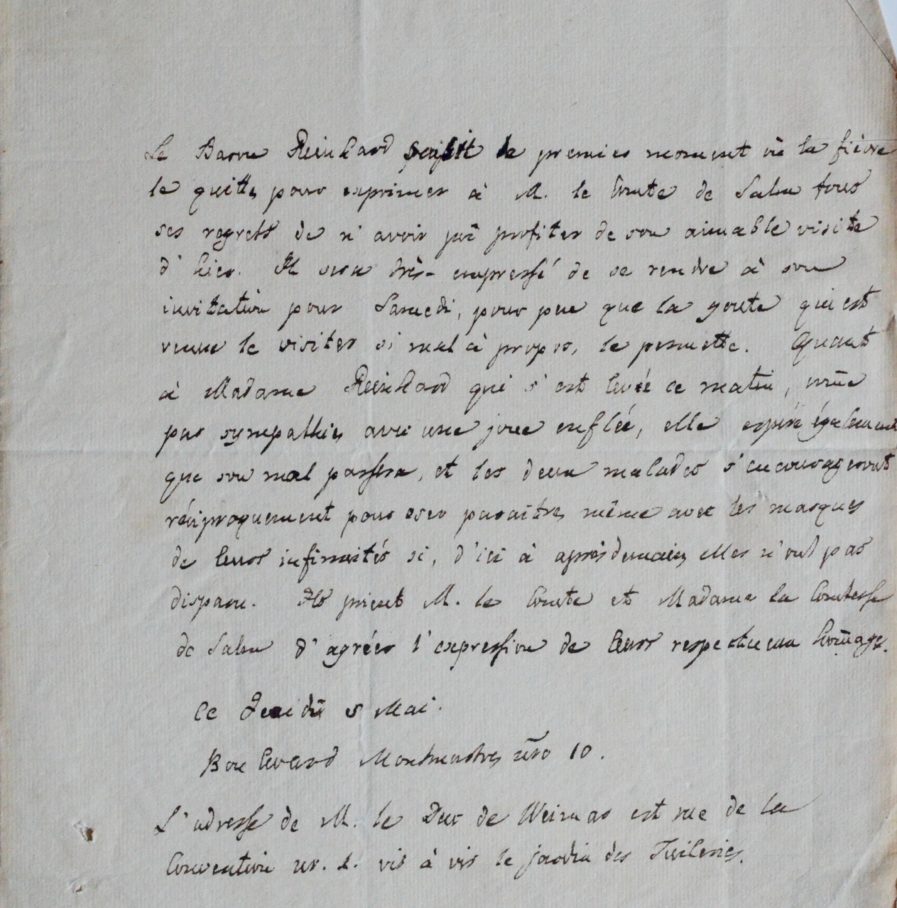 Le Baron Reinhard saisit le premier moment où la fièvre
le quitte pour exprimer à M. le Comte de Salm tous
ses regrets de n'avoir pû profiter de son aimable visite
d'hier. Il sera très-empressé de se rendre à son
invitation pour Samedi, pour peu que la goute qui est
venue le visiter si mal à propos, le permette. Quant
à Madame Reinhard qui s'est levée ce matin,
par sympathie, avec une joue enflée, elle espère également
que son mal passera, et les deux malades s'encourageront
réciproquement pour oser paraitre même avec les masques
de leurs infirmités si, d'ici à après demain, elles n'ont pas
disparu. Ils prient M. le Comte et Madame la Comtesse
de Salm d'agréer l'expression de leur respectueux hom̅age.
Ce Jeudi 5 Mai.
Boulevard Montmartre nro 10.
L'adresse de M. le Duc de Weimar est rue de la
Convention nr. 2. vis à vis le jardin des Tuileries.